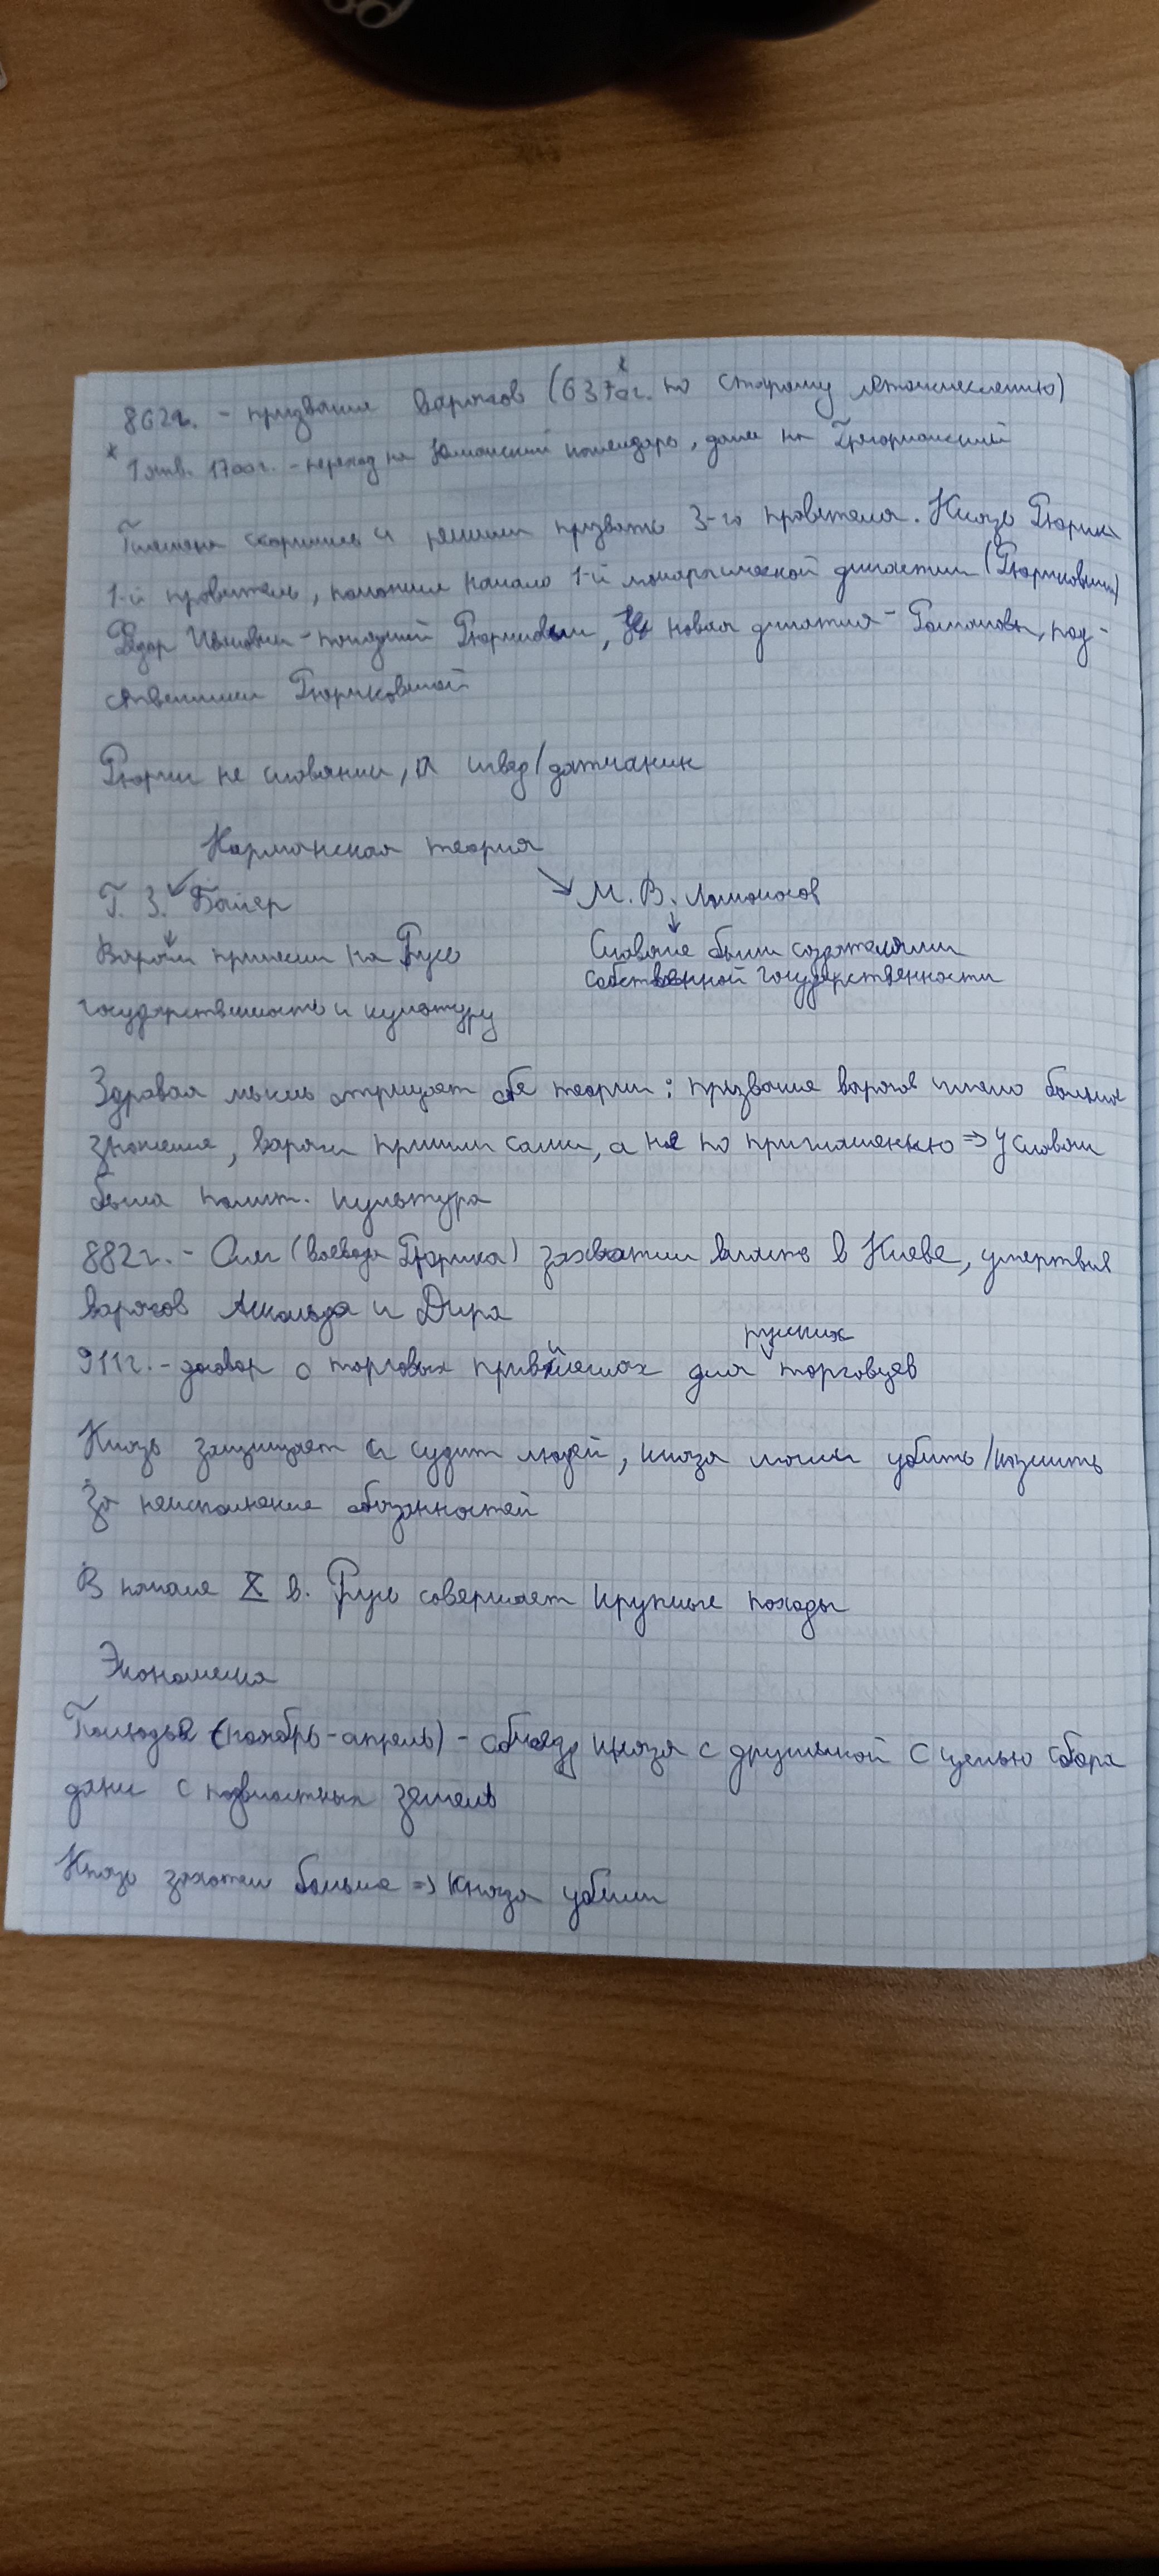 862г. - призвание варягов (6370г.* по старому летоисчислению)
* 1 янв. 1700г. - переход на Юлианский календарь, далее на Григорианский
Племена скорились и решили призвать 3-го правителя. Князь Рюрик
1-й правитель, положил начало 1-й монархической династии (Рюриковичи)
Фёдор Иванович - последний Рюрикович, новая династия - Романовы, род-
ственники Рюриковичей
Рюрик не славянин, а швед/датчанин
Норманская теория
Г. З. Байер
М. В. Ломоносов
Варяги принесли на Русь
государственность и культуру
Славяне были создателями
собственной государственности
Здравая мысль отрицает обе теории: призвание варягов имело большое
значение, варяги пришли сами, а не по приглашению => у славян
была полит. культура
882г. - Олег (воевода Рюрика) захватил власть в Киеве, умертвив
варягов Аскольда и Дира
911г. - договор о торговых привилегиях для русских торговцев
Князь защищает и судит людей, князя могли убить/казнить
За неисполнение обязанностей
В начале X в. Русь совершает крупные походы
Экономика
Полюдье (ноябрь-апрель) - объезд князя с дружиной с целью сбора
дани с подвластных земель
Князь захотел больше => князя убили